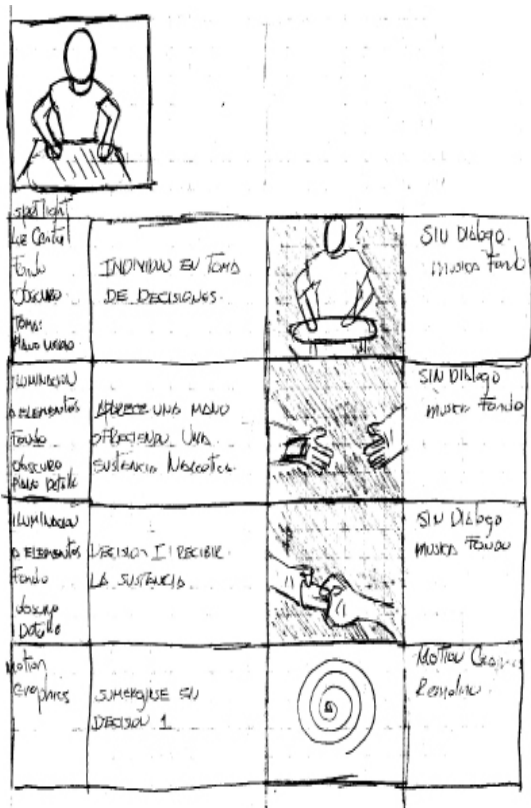 spotlight
Luz Central
Fondo
Obscuro
Toma:
Plano Medio
INDIVIDUO EN TOMA
DE DECISIONES.
?
SIN Diálogo.
musica Fondo
ILUMINACION
A ELEMENTOS
Fondo
obscuro
Plano Detalle
APARECE UNA MANO
OFRECIENDO UNA
SUSTANCIA NARCOTICA
SIN DIálogo
musica Fondo
ILUMINACION
A ELEMENTOS
Fondo
obscuro
Detalle
DECISION I: RECIBIR
LA SUSTANCIA
SIN DIálogo
musica FONDO
Motion
Graphics
SUMERGIRSE EN
DECISION 1
MOTION Graphics
Remolino